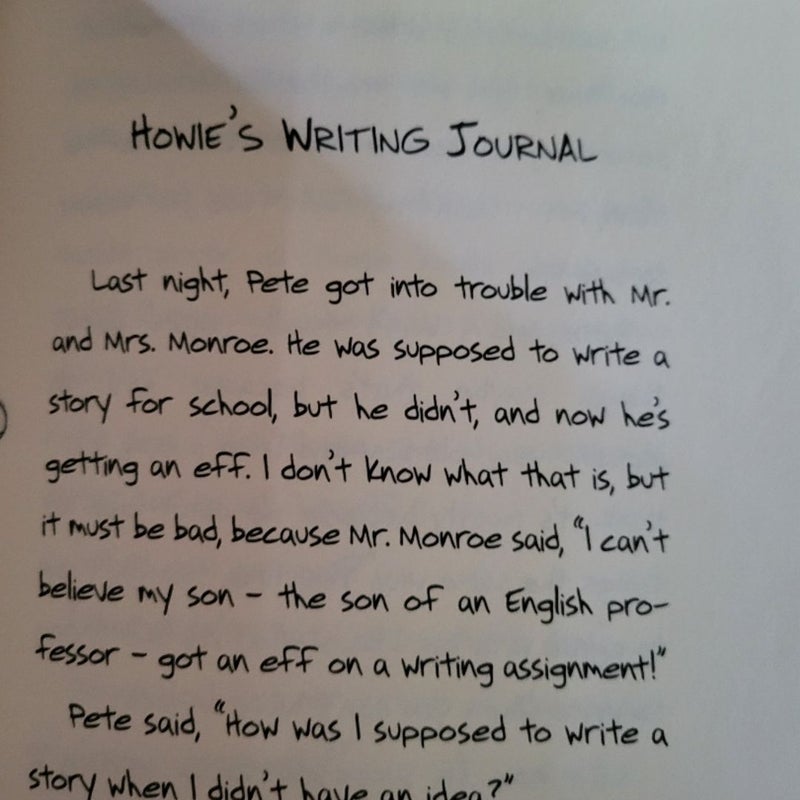 HOWIE'S WRITING JOURNAL
Last night, Pete got into trouble with Mr.
and Mrs. Monroe. He was supposed to write a
story for school, but he didn't, and now he's
getting an eff. I don't know what that is, but
it must be bad, because Mr. Monroe said, "I can't
believe my son – the son of an English pro-
fessor – got an eff on a writing assignment!"
Pete said, "How was I supposed to write a
story when I didn't have an idea?"